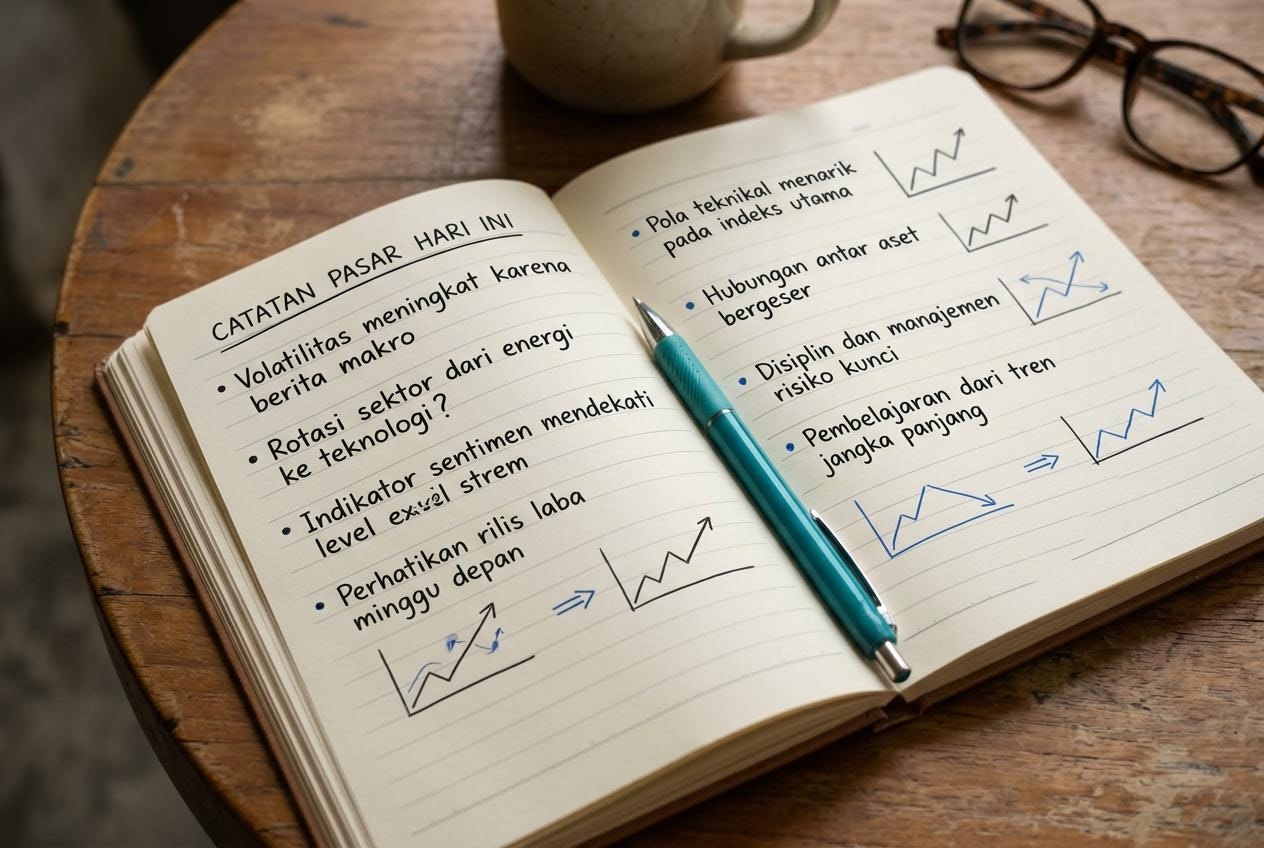 CATATAN PASAR HARI INI
• Volatilitas meningkat karena
berita makro
• Rotasi sektor dari energi
ke teknologi?
• Indikator sentimen mendekati
level strem
• Perhatikan rilis laba
minggu depan
• Pola teknikal menarik
pada indeks utama
• Hubungan antar aset
bergeser
• Disiplin dan manajemen
risiko kunci
• Pembelajaran dari tren
jangka panjang